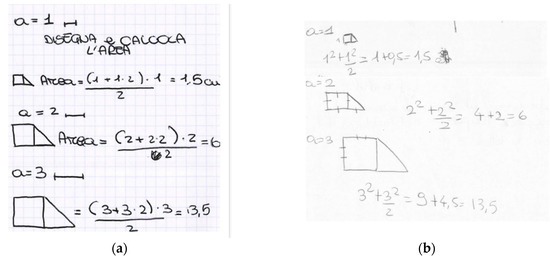 a = 1
DISEGNA e CALCOLA
L'AREA
Area = (1 + 1·2)·1 / 2 = 1,5 cu
a = 2
Area = (2 + 2·2)·2 / 2 = 6
a = 3
= (3 + 3·2)·3 / 2 = 13,5
(a)
a=1
1² + 1²/2 = 1 + 0,5 = 1,5
a=2
2² + 2²/2 = 4 + 2 = 6
a=3
3² + 3²/2 = 9 + 4,5 = 13,5
(b)